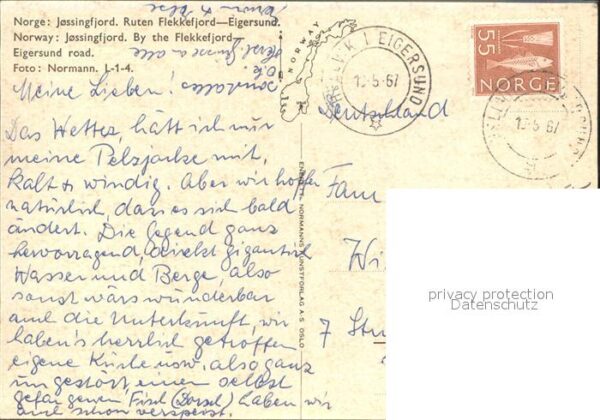 Norge: Jøssingfjord. Ruten Flekkefjord—Eigersund.
Norway: Jøssingfjord. By the Flekkefjord—
Eigersund road.
Foto: Normann. L-1-4.
Meine Lieben!
Das Wetter, hätt ich nur
meine Pelzjacke mit,
kalt + windig. Aber wir hoffen
natürlich, dass es sich bald
ändert. Die Gegend ganz
hervorragend, direkt gigantisch
Wasser und Berge, also
sonst wärs wunderbar
auch die Unterkunft, wir
haben's herrlich getroffen
eigene Küche usw. also ganz
ungestört, einen selbst
gefangenen Fisch (Dorsch) haben wir
auch schon verspeist.
NORWAY
ENERETT: NORMANNS KUNSTFORLAG A/S OSLO
I EIGERSUND
13-5-67
55
NORGE
13-5-67
Deutschland
Fam
Wi
7 Stu
privacy protection
Datenschutz